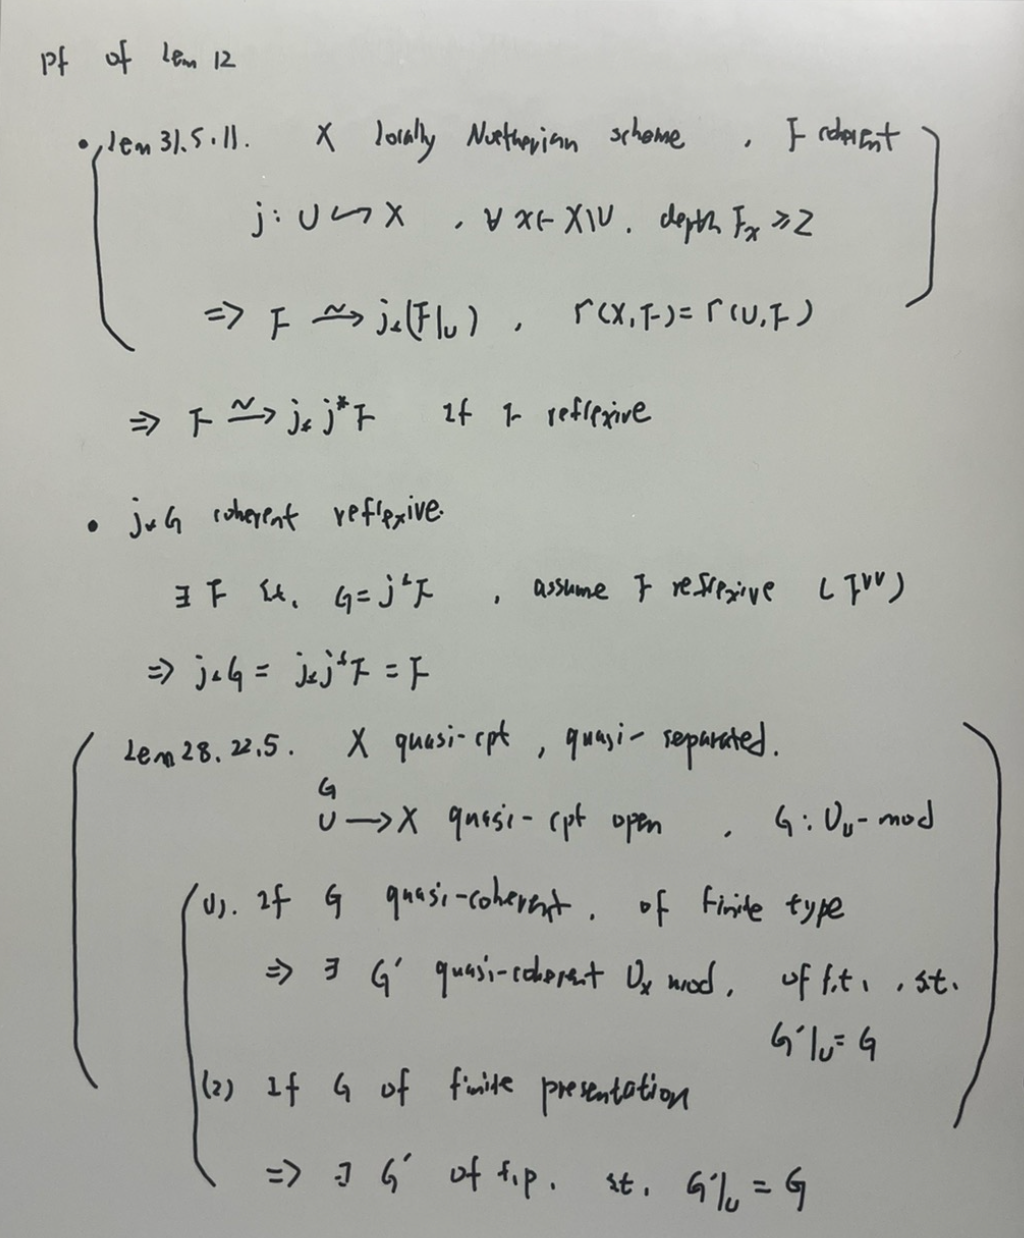 pf of lem 12
• lem 31.5.11. X locally Noetherian scheme, F coherent
j: U ↪ X, ∀ x∈X\U. depth Fx ≥ 2
⇒ F ⥲ j*(F|U), Γ(X,F) = Γ(U,F)
⇒ F ⥲ j* j*F if F reflexive
• j*G coherent reflexive.
∃ F s.t. G = j*F, assume F reflexive (F^vv)
⇒ j*G = j*j*F = F
Lem 28.22.5. X quasi-cpt, quasi-separated.
G
U → X quasi-cpt open, G: OU-mod
(1). If G quasi-coherent. of finite type
⇒ ∃ G' quasi-coherent Ox mod. of f.t., s.t.
G'|U = G
(2) If G of finite presentation
⇒ ∃ G' of f.p. st. G'|U = G